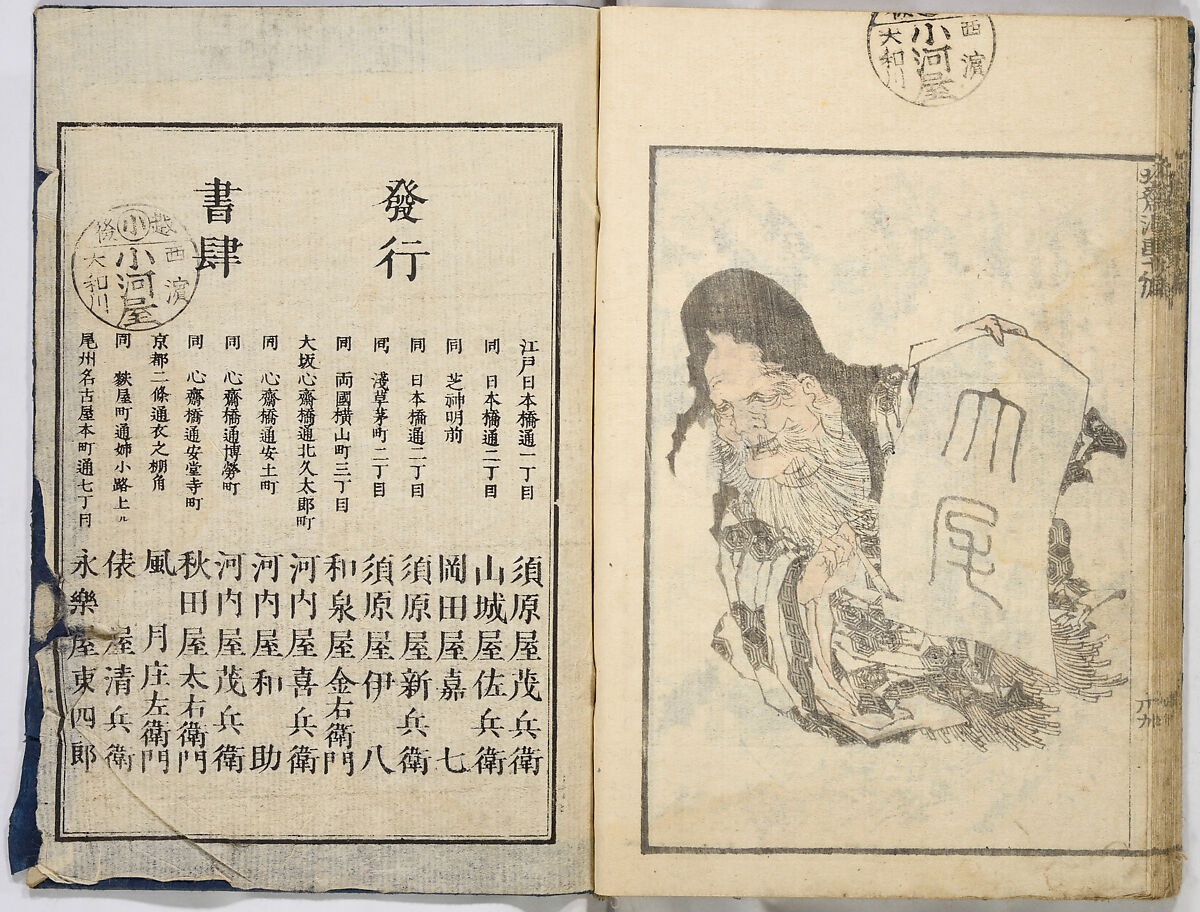 小河屋
西濱
大和川
大尾
發行
書肆
江戸日本橋通一丁目 須原屋茂兵衛
同 日本橋通二丁目 山城屋佐兵衛
同 芝神明前 岡田屋嘉七
同 日本橋通二丁目 須原屋新兵衛
同 淺草茅町二丁目 須原屋伊八
同 両國横山町三丁目 和泉屋金右衛門
大坂心齋橋通北久太郎町 河内屋喜兵衛
同 心齋橋通安土町 河内屋和助
同 心齋橋通博勞町 河内屋茂兵衛
同 心齋橋通安堂寺町 秋田屋太右衛門
京都二條通衣之棚角 風月庄左衛門
同 麩屋町通姉小路上ル 俵屋清兵衛
尾州名古屋本町通七丁目 永樂屋東四郎
越後
小
小河屋
西濱
大和川